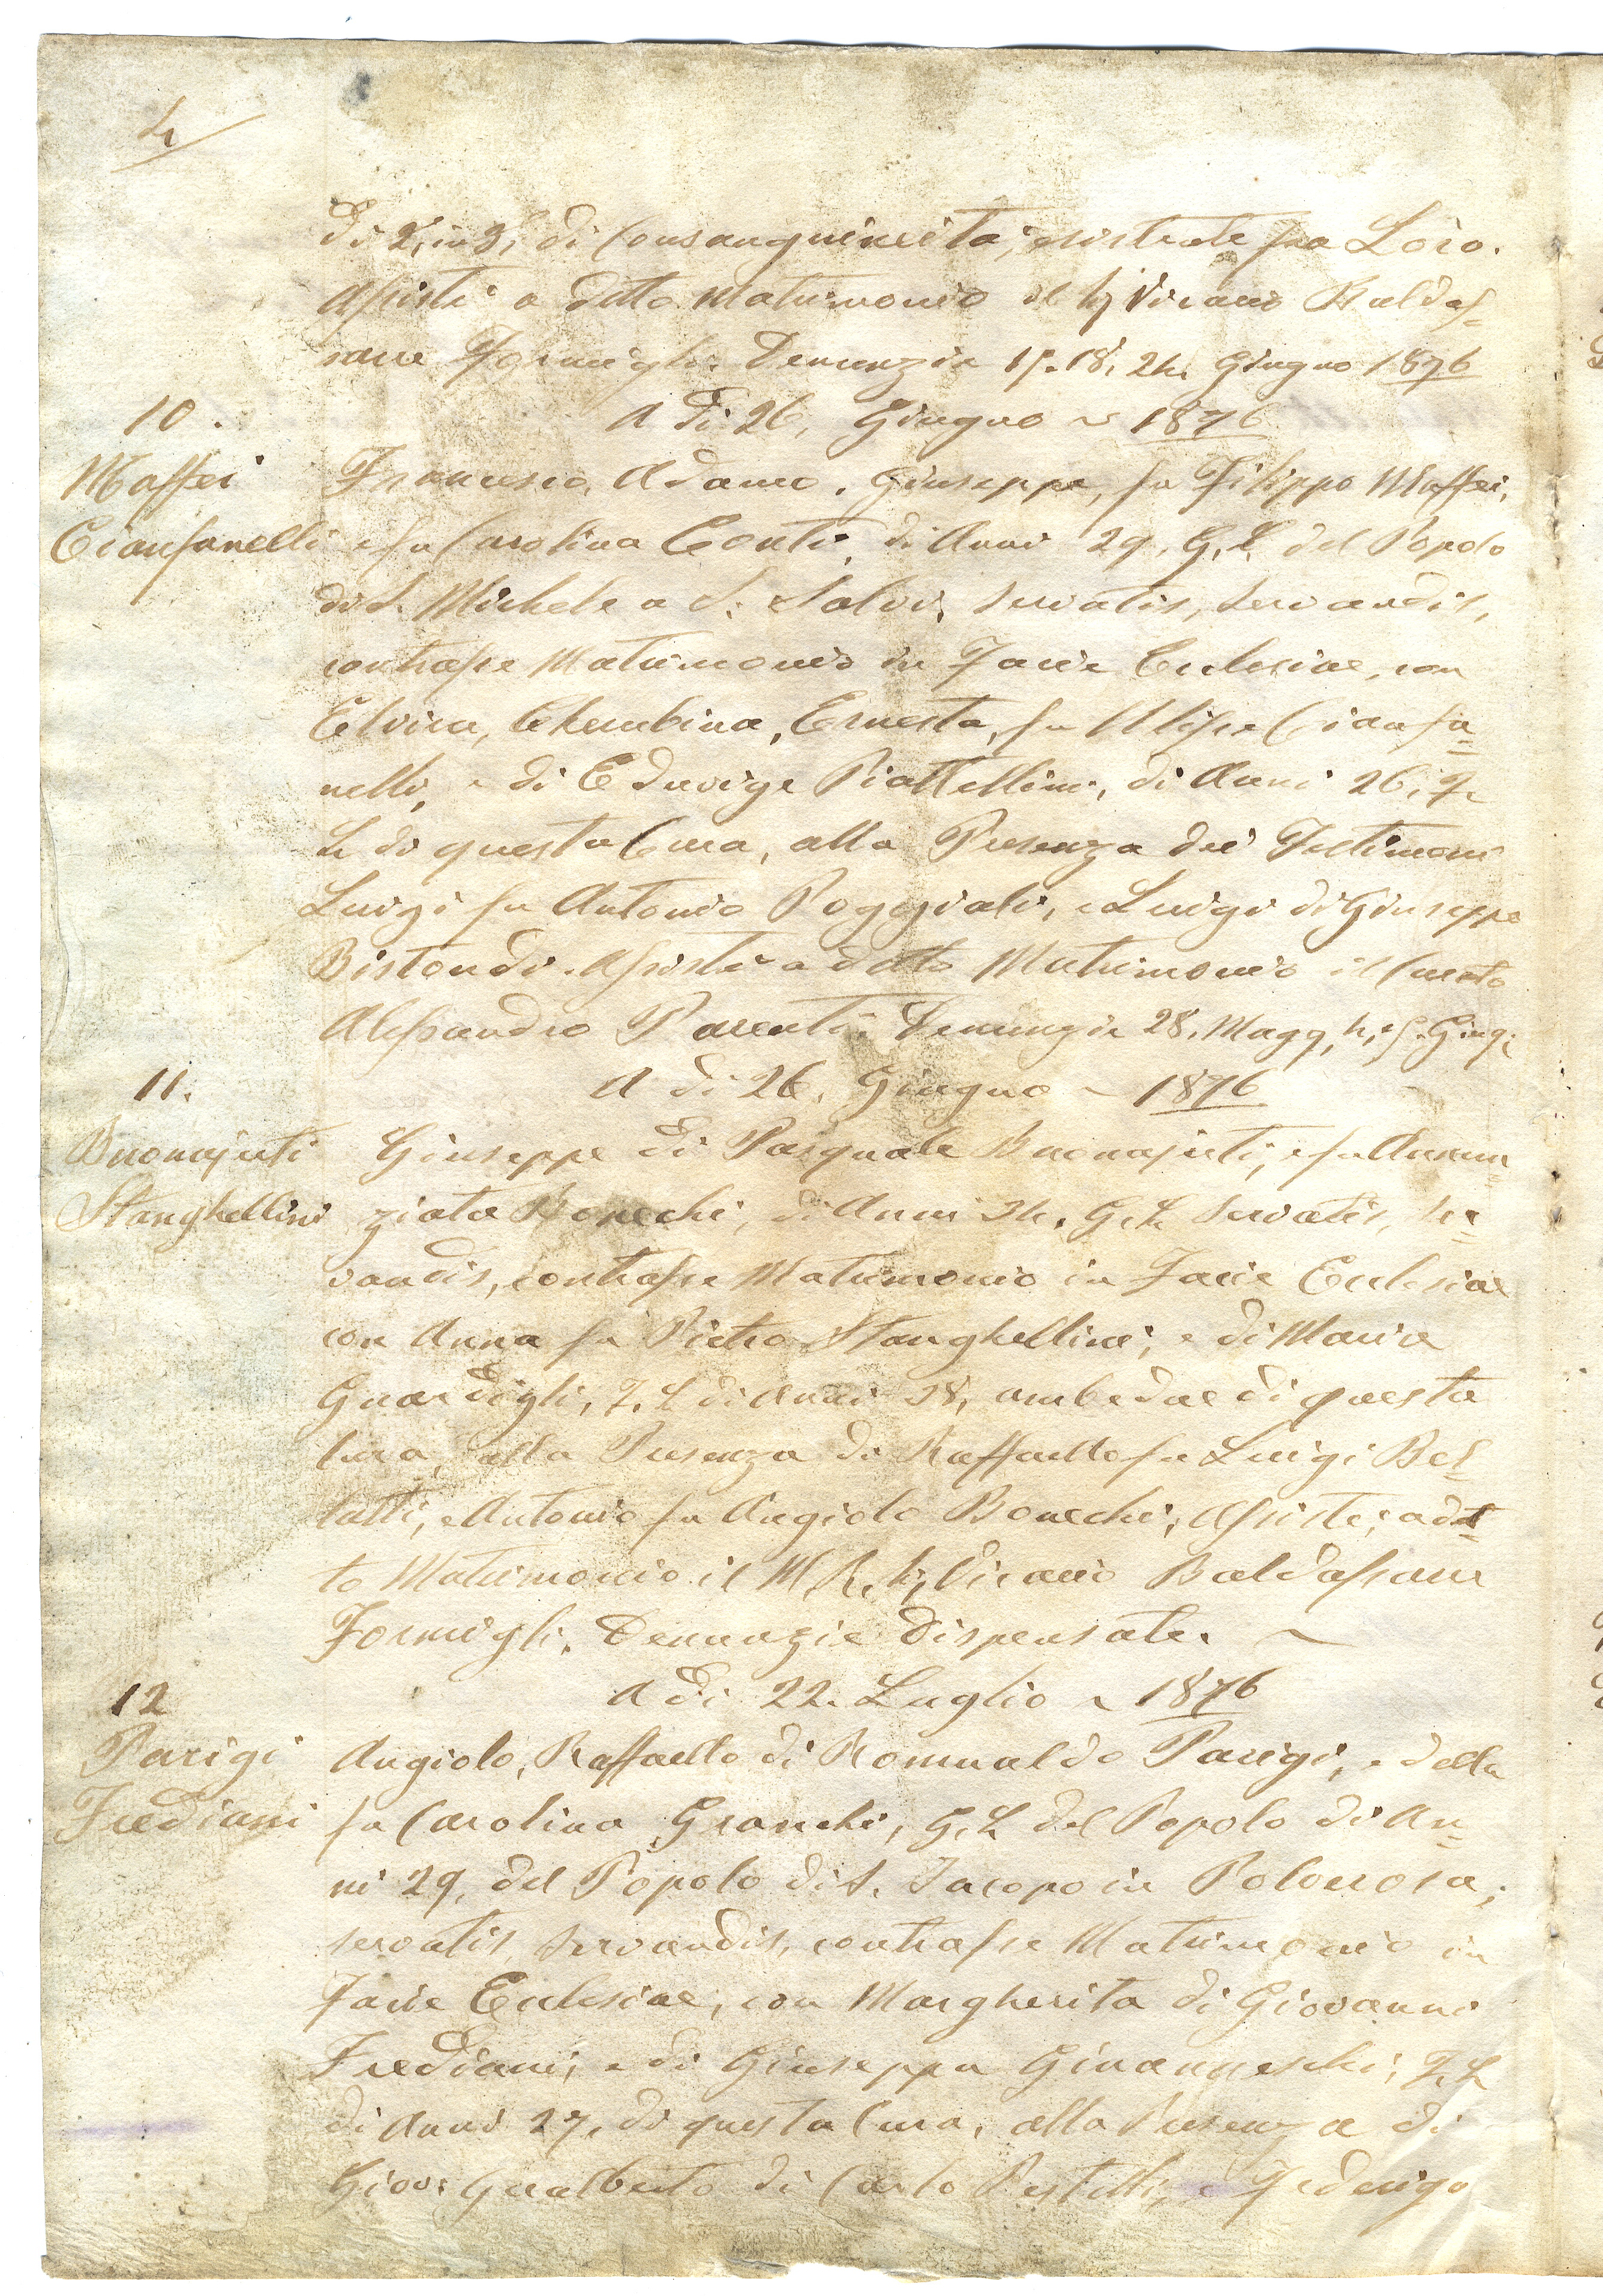 4
di 2, in 3, di Consanguineità, esistente fra Loro.
Assistè a detto Matrimonio il Vicario Baldas=
sarre Formigli. Denunzie 15. 18. 24. Giugno 1876
10.
A Dì 26, Giugno ~ 1876
Maffei
Cianfanelli
Francesco, Adamo, Giuseppe, fu Filippo Maffei,
e fu Carolina Conti, di Anni 29, G, L, del Popolo
di S. Michele a S: Salvi, servatis, servandis,
contrasse Matrimonio in Facie Eclesiae, con
Elvira, Cherubina, Ernesta, fu Ulisse Cianfa=
nelli, e di Eduvige Piattellini, di Anni 26, F.
L di questa Cura, alla Presenza dei Testimoni
Luigi fu Antonio Poggiali, e Luigi di Giuseppe
Bistondi. Assistè a detto Matrimonio il Curato
Alessandro Parenti. Denunzie 28. Magg, 4, e 5. Giug;
11.
A dì 26. Giugno ~ 1876
Buonajuti
Stanghellini
Giuseppe di Pasquale Buonajuti, e fu Annun
ziata Bonechi, di Anni 34. G. L servatis, ser=
vandis, contrasse Matrimonio in Facie Eclesiae
con Anna fu Pietro Stanghellini, e di Maria
Guardigli, F. L di Anni 28, ambedue di questa
Cura, alla Presenza di Raffaello fu Luigi Bel=
latti, e Antonio fu Angiolo Bonechi; Assistè, a det=
to Matrimonio il M. R. Vicario Baldassarre
Formigli. Denunzie dispensate. ~
12
A dì 22. Luglio ~ 1876
Parigi
Frediani
Angiolo, Raffaello di Romualdo Parigi, e della
fu Carolina Granchi, G. L del Popolo di An=
ni 29, del Popolo di S. Jacopo in Polverosa;
servatis servandis, contrasse Matrimonio in
Facie Eclesiae, con Margherita di Giovanni
Frediani, e di Giuseppa Ginanneschi, F. L
di Anni 27, di questa Cura, alla Presenza di
Giov: Gualberto di Carlo Pestelli, e Federigo